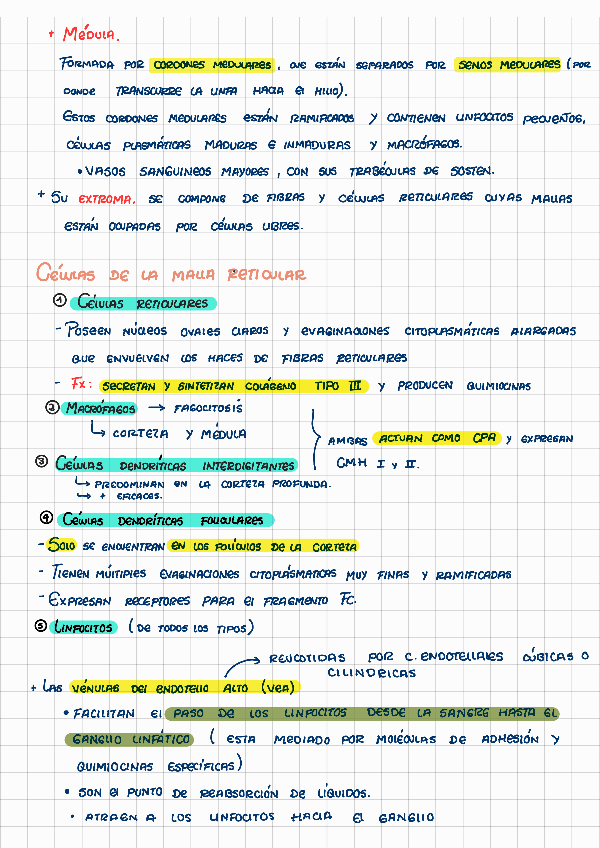 + MÉDULA.
FORMADA POR CORDONES MEDULARES, QUE ESTÁN SEPARADOS POR SENOS MEDULARES (POR
DONDE TRANSCURRE LA LINFA HACIA EL HILIO).
ESTOS CORDONES MEDULARES ESTÁN RAMIFICADOS Y CONTIENEN LINFOCITOS PEQUEÑOS,
CÉLULAS PLASMÁTICAS MADURAS E INMADURAS Y MACRÓFAGOS.
• VASOS SANGUINEOS MAYORES, CON SUS TRABÉCULAS DE SOSTEN.
+ SU EXTROMA. SE COMPONE DE FIBRAS Y CÉLULAS RETICULARES CUYAS MALLAS
ESTÁN OCUPADAS POR CÉLULAS LIBRES.
CÉLULAS DE LA MALLA RETICULAR
① CÉLULAS RETICULARES
- POSEEN NÚCLEOS OVALES CLAROS Y EVAGINACIONES CITOPLASMÁTICAS ALARGADAS
QUE ENVUELVEN LOS HACES DE FIBRAS RETICULARES
- FX: SECRETAN Y SINTETIZAN COLÁGENO TIPO III Y PRODUCEN QUIMIOCINAS
② MACRÓFAGOS → FAGOCITOSIS
↳ CORTEZA Y MÉDULA
AMBAS ACTUAN COMO CPA Y EXPRESAN
CMH I Y II.
③ CÉLULAS DENDRÍTICAS INTERDIGITANTES
↳ PREDOMINAN EN LA CORTEZA PROFUNDA.
↳ + EFICACES.
④ CÉLULAS DENDRÍTICAS FOLICULARES
- SOLO SE ENCUENTRAN EN LOS FOLÍCULOS DE LA CORTEZA
- TIENEN MÚLTIPLES EVAGINACIONES CITOPLÁSMATICAS MUY FINAS Y RAMIFICADAS
- EXPRESAN RECEPTORES PARA EL FRAGMENTO FC.
⑤ LINFOCITOS (DE TODOS LOS TIPOS)
→ REVESTIDAS POR C. ENDOTELIALES CÚBICAS O
CILINDRICAS
+ LAS VÉNULAS DEL ENDOTELIO ALTO (VEA)
• FACILITAN EL PASO DE LOS LINFOCITOS DESDE LA SANGRE HASTA EL
GANGLIO LINFÁTICO ( ESTA MEDIADO POR MOLÉCULAS DE ADHESIÓN Y
QUIMIOCINAS ESPECÍFICAS)
• SON EL PUNTO DE REABSORCIÓN DE LÍQUIDOS.
• ATRAEN A LOS LINFOCITOS HACIA EL GANGLIO